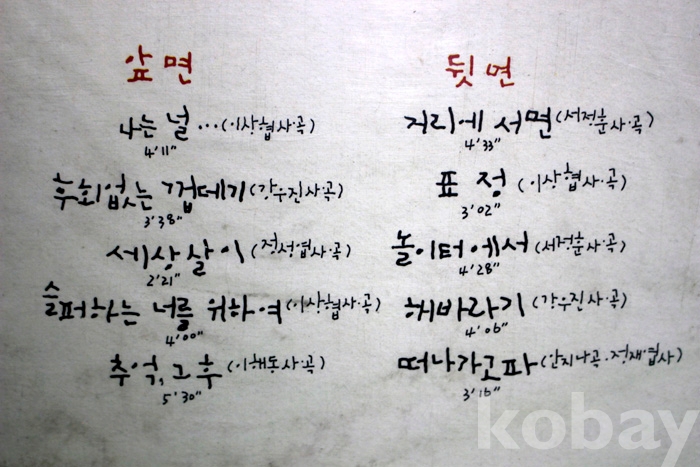 앞면
나는 널…(이상협 사·곡)
4'11"
후회없는 껍데기(강우진 사·곡)
3'38"
세상살이(정성엽 사·곡)
2'21"
슬퍼하는 너를 위하여(이상협 사·곡)
4'00"
추억, 그 후(이해동 사·곡)
5'30"
뒷면
거리에 서면(서정훈 사·곡)
4'33"
표정(이상협 사·곡)
3'02"
놀이터에서(서정훈 사·곡)
4'28"
해바라기(강우진 사·곡)
4'06"
떠나가고파(안지나 곡·정재엽 사)
3'16"
kobay